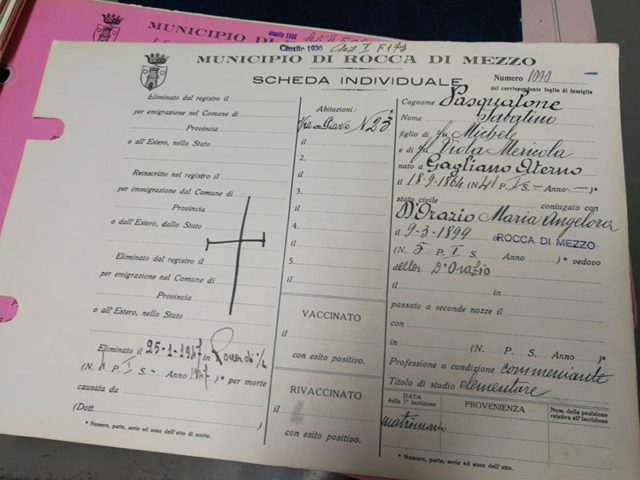 MUNICIPIO DI
Censito 1936
MUNICIPIO DI ROCCA DI MEZZO
SCHEDA INDIVIDUALE
Numero 1090
del corrispondente foglio di famiglia
Eliminato dal registro il
per emigrazione nel Comune di
Provincia
o all'Estero, nello Stato
Reinscritto nel registro il
per immigrazione dal Comune di
Provincia
o dall'Estero, dallo Stato
Eliminato dal registro il
per emigrazione nel Comune di
Provincia
o all'Estero, nello Stato
Eliminato il 25-1-1947 in
(N. 1 P. I S. - Anno 1947) * per morte
causata da
(Dott.)
* Numero, parte, serie ed anno dell'atto di morte.
Abitazioni:
Via Giave N 23
il
2.
il
3.
il
4.
il
5.
il
VACCINATO
il
con esito positivo.
RIVACCINATO
il
con esito positivo.
Cognome Pasqualone
Nome Sabatino
figlio di fu Michele
e di fu Viola Mericola
nato a Gagliano Aterno
il 18-9-1864 (N. 41 P. I S. - Anno - )*
stato civile coniugato con
D'Orazio Maria Angelora
il 9-3-1899 in ROCCA DI MEZZO
(N. 5 P. I S. Anno )* vedovo
della D'Orazio
il in
passato a seconde nozze il
con
in (N. P. S. Anno )*
Professione o condizione commerciante
Titolo di studio elementare
DATA della 1ª iscrizione
PROVENIENZA
Num. della posizione relativa all'iscrizione
matrimonio
* Numero, parte, serie ed anno dell'atto.